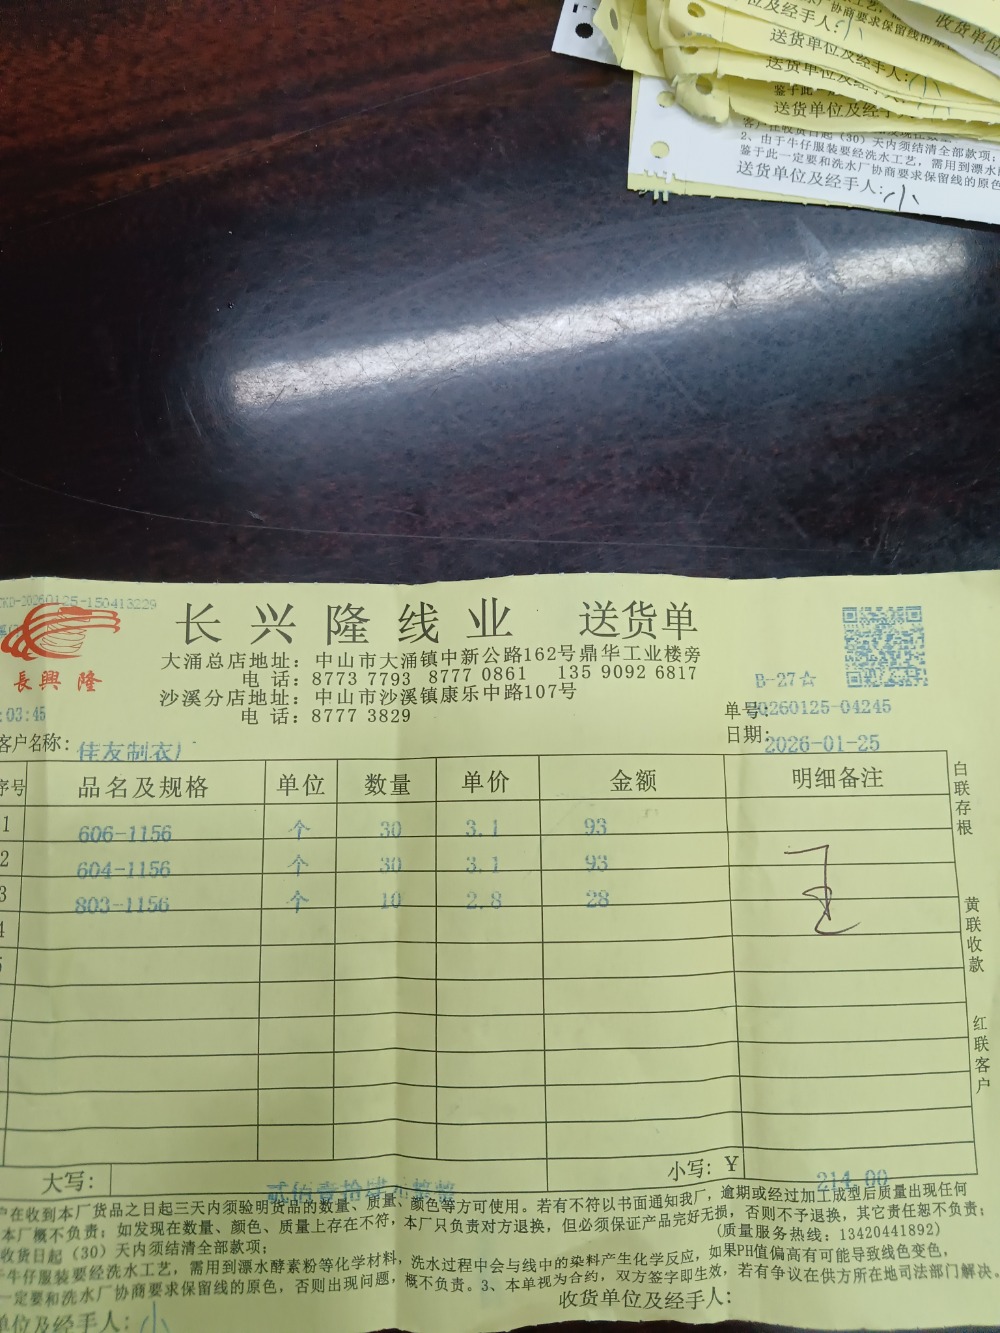 及经手人:小
厂协商要求保留线的原
收货单位
送货单位及经手人:小
送货单位及经手人:小
鉴于此一
送货单位及经手
客户在收货日起（30）天内须结清全部款项；
2、由于牛仔服装要经洗水工艺，需用到漂水
鉴于此一定要和洗水厂协商要求保留线的原色
送货单位及经手人:小
KD-20260125-150413229
長興隆
长兴隆线业 送货单
大涌总店地址：中山市大涌镇中新公路162号鼎华工业楼旁
电 话：8773 7793 8777 0861 135 9092 6817
沙溪分店地址：中山市沙溪镇康乐中路107号
电 话：8777 3829
B-27☆
:03:45
单号:20260125-04245
日期:2026-01-25
客户名称: 佳友制衣厂
序号 品名及规格 单位 数量 单价 金额 明细备注
1 606-1156 个 30 3.1 93
2 604-1156 个 30 3.1 93
3 803-1156 个 10 2.8 28
4
5
白联存根
黄联收款
红联客户
大写: 贰佰壹拾肆元整整 小写: ¥ 214.00
户在收到本厂货品之日起三天内须验明货品的数量、质量、颜色等方可使用。若有不符以书面通知我厂，逾期或经过加工成型后质量出现任何
本厂概不负责；如发现在数量、颜色、质量上存在不符，本厂只负责对方退换，但必须保证产品完好无损，否则不予退换，其它责任恕不负责；
收货日起（30）天内须结清全部款项； (质量服务热线: 13420441892)
牛仔服装要经洗水工艺，需用到漂水酵素粉等化学材料，洗水过程中会与线中的染料产生化学反应，如果PH值偏高有可能导致线色变色，
一定要和洗水厂协商要求保留线的原色，否则出现问题，概不负责。3、本单视为合约，双方签字即生效，若有争议在供方所在地司法部门解决。
单位及经手人:小 收货单位及经手人: